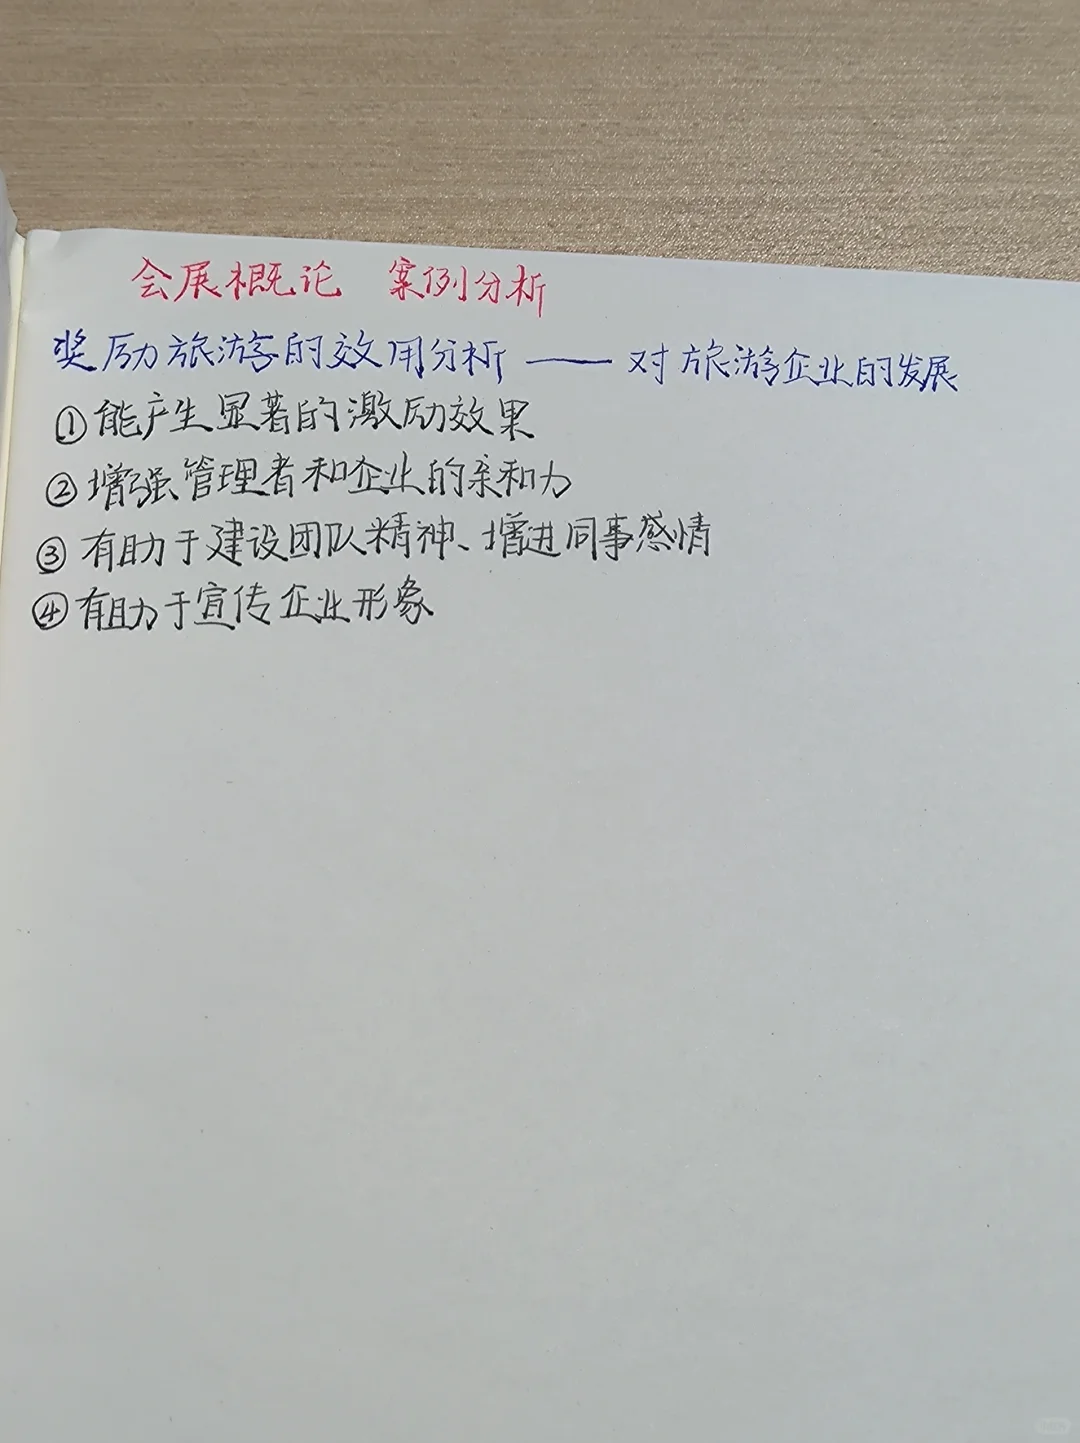 会展概论 案例分析
奖励旅游的效用分析 —— 对旅游企业的发展
①能产生显著的激励效果
②增强管理者和企业的亲和力
③有助于建设团队精神、增进同事感情
④有助于宣传企业形象